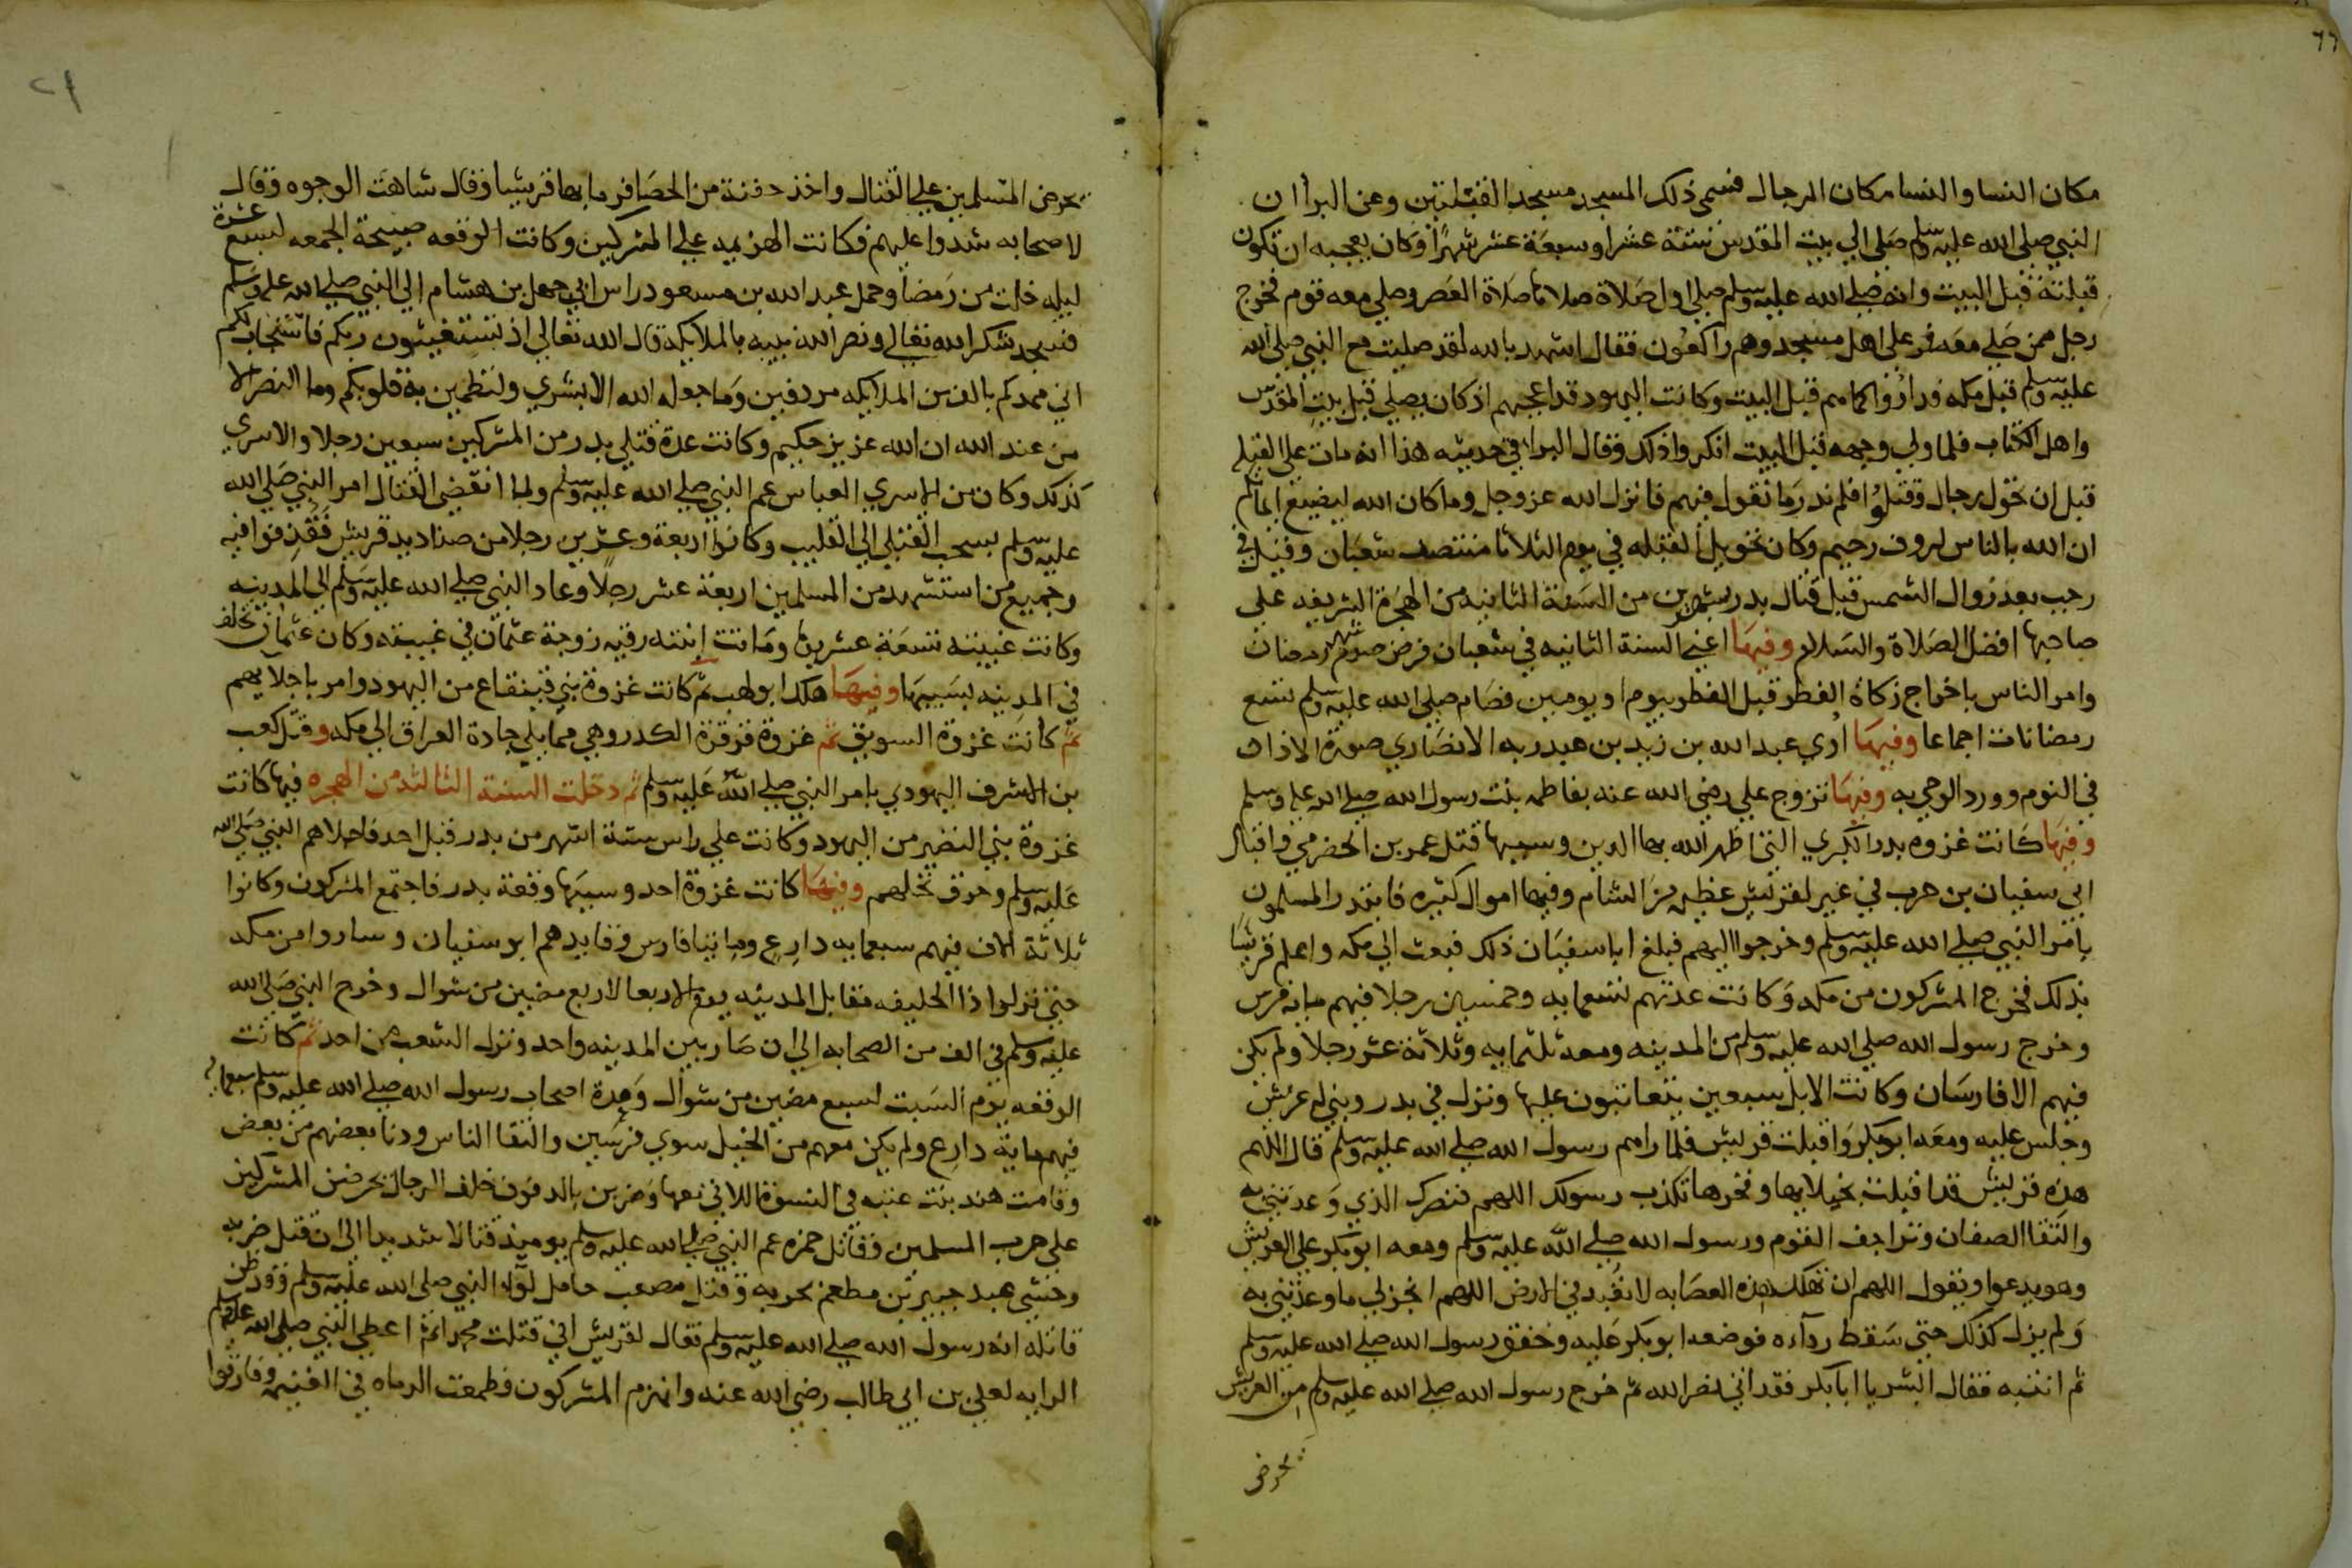 ٦٦
مكان النسا والنسا مكان الرجال فسمى ذلك المسجد مسجد القبلتين وعن البرا ان
النبي صلى الله عليه وسلم صلى الى بيت المقدس ستة عشر او سبعة عشر شهرا وكان يعجبه ان تكون
قبلته قبل البيت وانه صلى الله عليه وسلم صلى اول صلاة صلاها صلاة العصر وصلى معه قوم فخرج
رجل ممن صلى معه فمر على اهل مسجد وهم راكعون فقال اشهد بالله لقد صليت مع النبي صلى الله
عليه وسلم قبل مكه فداروا كما هم قبل البيت وكانت اليهود قد اعجبهم اذ كان يصلي قبل بيت المقدس
واهل الكتاب فلما ولي وجهه قبل البيت انكروا ذلك وقال البرا في حديثه هذا انه مات على القبله
قبل ان تحول رجال وقتلوا فلم ندر ما نقول فيهم فانزل الله عز وجل وما كان الله ليضيع ايمانكم
ان الله بالناس لروف رحيم وكان تحويل القبله في يوم الثلاثا منتصف شعبان وقيل في
رجب بعد زوال الشمس قبل قتال بدر بشهرين من السنة الثانيه من الهجرة الشريفه على
صاحبها افضل الصلاة والسلام وفيها اعني السنة الثانيه في شعبان فرض صوم شهر رمضان
وامر الناس باخراج زكاة الفطر قبل الفطر بيوم او يومين فصام صلى الله عليه وسلم تسع
رمضانات اجماعا وفيها اري عبد الله بن زيد بن عبد ربه الانصاري صورة الاذان
في النوم وورد الوحي به وفيها تزوج علي رضي الله عنه بفاطمه بنت رسول الله صلى الله عليه وسلم
وفيها كانت غزوه بدر الكبري التي اظهر الله بها الدين وسببها قتل عمر بن الحضرمي واقبال
ابي سفيان بن حرب في عير لقريش عظيمه من الشام وفيها اموال كثيره فانتدر المسلمون
بامر النبي صلى الله عليه وسلم وخرجوا اليهم فبلغ ابا سفيان ذلك فبعث الى مكه واعلم قريشا
بذلك فخرج المشركون من مكه وكانت عدتهم تسعمايه وخمسين رجلا فيهم مايه فرس
وخرج رسول الله صلى الله عليه وسلم من المدينه ومعه ثلثمايه وثلاثة عشر رجلا ولم يكن
فيهم الا فارسان وكانت الابل سبعين يتعاقبون عليها ونزل في بدر وبني له عريش
وجلس عليه ومعه ابو بكر واقبلت قريش فلما راهم رسول الله صلى الله عليه وسلم قال اللهم
هذه قريش قد اقبلت بخيلايها وفخرها تكذب رسولك اللهم فنصرك الذي وعدتني به
والتقا الصفان وتزاحف القوم ورسول الله صلى الله عليه وسلم ومعه ابو بكر على العريش
وهو يدعوا ويقول اللهم ان تهلك هذه العصابه لا تعبد في الارض اللهم انجز لي ما وعدتني به
ولم يزل كذلك حتى سقط رداءه فوضعه ابو بكر عليه وخفق رسول الله صلى الله عليه وسلم
ثم انتبه فقال ابشر يا ابا بكر فقد اتى نصر الله ثم خرج رسول الله صلى الله عليه وسلم من العريش
يحرض
يحرض المسلمين على القتال واخذ حفنة من الحصا فرما بها قريشا وقال شاهت الوجوه وقال
لاصحابه شدوا عليهم فكانت الهزيمه على المشركين وكانت الوقعه صبيحة الجمعه لسبع عشرة
ليله خلت من رمضان وحمل عبد الله بن مسعود راس ابي جهل بن هشام الى النبي صلى الله عليه وسلم
فسجد شكرا لله تعالى ونصر الله نبيه بالملايكة قال الله تعالى اذ تستغيثون ربكم فاستجاب لكم
اني ممدكم بالف من الملايكه مردفين وما جعله الله الا بشري ولتطمين به قلوبكم وما النصر الا
من عند الله ان الله عزيز حكيم وكانت عدة قتلي بدر من المشركين سبعين رجلا والاسري
كذلك وكان من الاسري العباس عم النبي صلى الله عليه وسلم ولما انقضي القتال امر النبي صلى الله
عليه وسلم بسحب القتلي الى القليب وكانوا اربعة وعشرين رجلا من صناديد قريش فقذفوا فيه
وجميع من استشهد من المسلمين اربعة عشر رجلا وعاد النبي صلى الله عليه وسلم الى المدينه
وكانت غيبته تسعة عشر يوما وماتت ابنته رقيه زوجة عثمان في غيبته وكان عثمان تخلف
في المدينه بسببها وفيها هلك ابو لهب ثم كانت غزوة بني قينقاع من اليهود وامر باجلايهم
ثم كانت غزوة السويق ثم غزوة قرقرة الكدر وهي مما يلي جادة العراق الى مكه وقتل كعب
بن الاشرف اليهودي بامر النبي صلى الله عليه وسلم ثم دخلت السنة الثالثه من الهجره فيها كانت
غزوة بني النضير من اليهود وكانت على راس ستة اشهر من بدر قبل احد فاجلاهم النبي صلى الله
عليه وسلم وحرق نخلهم وفيها كانت غزوة احد وسببها وقعة بدر فاجتمع المشركون وكانوا
ثلاثة الاف فيهم سبعمايه دارع ومايتا فارس وقايدهم ابو سفيان وساروا من مكه
حتى نزلوا ذا الحليفه مقابل المدينه يوم الاربعا لاربع مضين من شوال وخرج النبي صلى الله
عليه وسلم في الف من الصحابه الى ان صار بين المدينه واحد ونزل الشعب من احد ثم كانت
الوقعه يوم السبت لسبع مضين من شوال وعدة اصحاب رسول الله صلى الله عليه وسلم سبعمايه
فيهم مايه دارع ولم يكن معهم من الخيل سوي فرسين والتقا الناس ودنا بعضهم من بعض
وقامت هند بنت عتبه في النسوة اللاتي معها وضربن بالدفوف خلف الرجال يحرضن المشركين
على حرب المسلمين وقاتل حمزه عم النبي صلى الله عليه وسلم يوميذ قتالا شديدا الى ان قتل ضربه
وحشي عبد جبير بن مطعم بحربه وقتل مصعب حامل لواء النبي صلى الله عليه وسلم وقد ظن
قاتله انه رسول الله صلى الله عليه وسلم فقال لقريش اني قتلت محمدا ثم اعطي النبي صلى الله عليه وسلم
الرايه لعلي بن ابي طالب رضي الله عنه وانهزم المشركون وطمعت الرماه في الغنيمه وفارقوا